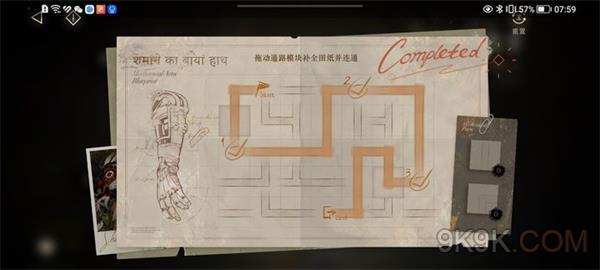 57% 07:59
重置
शमान का बायां हाथ
Mechanical Arm
Blueprint
拖动通路模块补全图纸并连通
Completed
Start
2
1
3
End
0
0
9K9K.COM